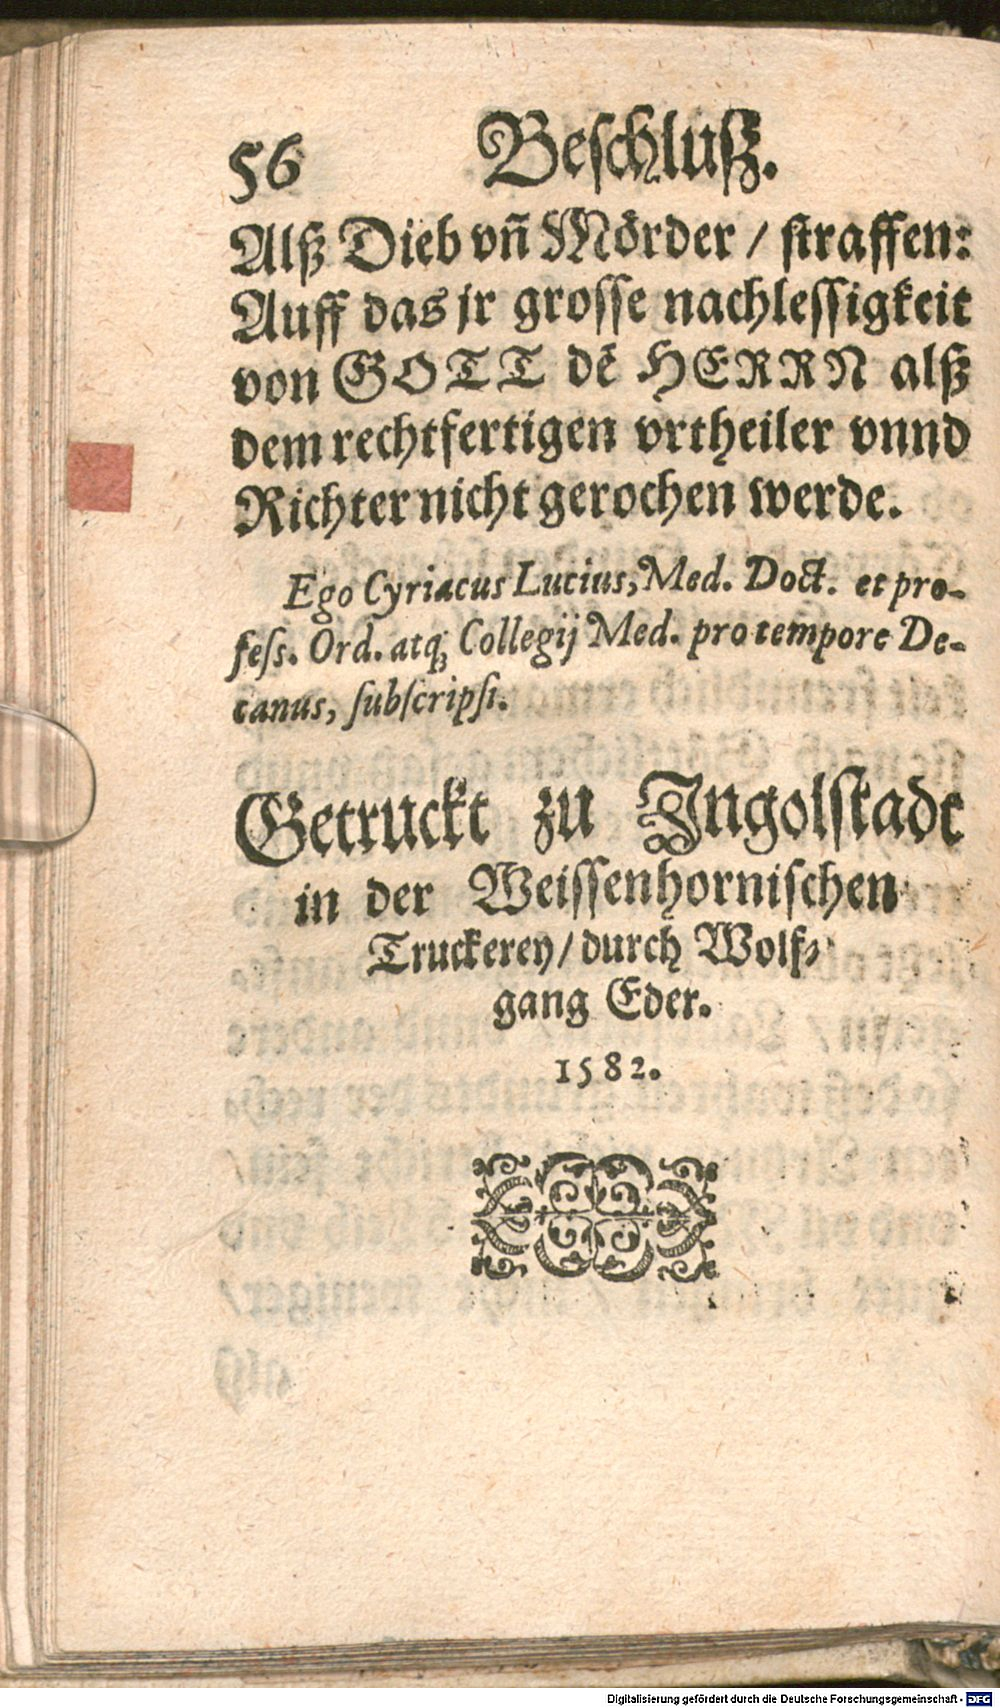 56 Beschluß.
Alß Dieb vñ Mörder / straffen:
Auff das jr grosse nachlessigkeit
von GOTT dē HERRN alß
dem rechtfertigen vrtheiler vnnd
Richter nicht gerochen werde.
Ego Cyriacus Lucius, Med. Doct. et pro-
feſs. Ord. atq; Collegij Med. pro tempore De-
canus, ſubſcripſi.
Getruckt zu Ingolstadt
in der Weissenhornischen
Truckerey / durch Wolf-
gang Eder.
1582.
Digitalisierung gefördert durch die Deutsche Forschungsgemeinschaft - DFG